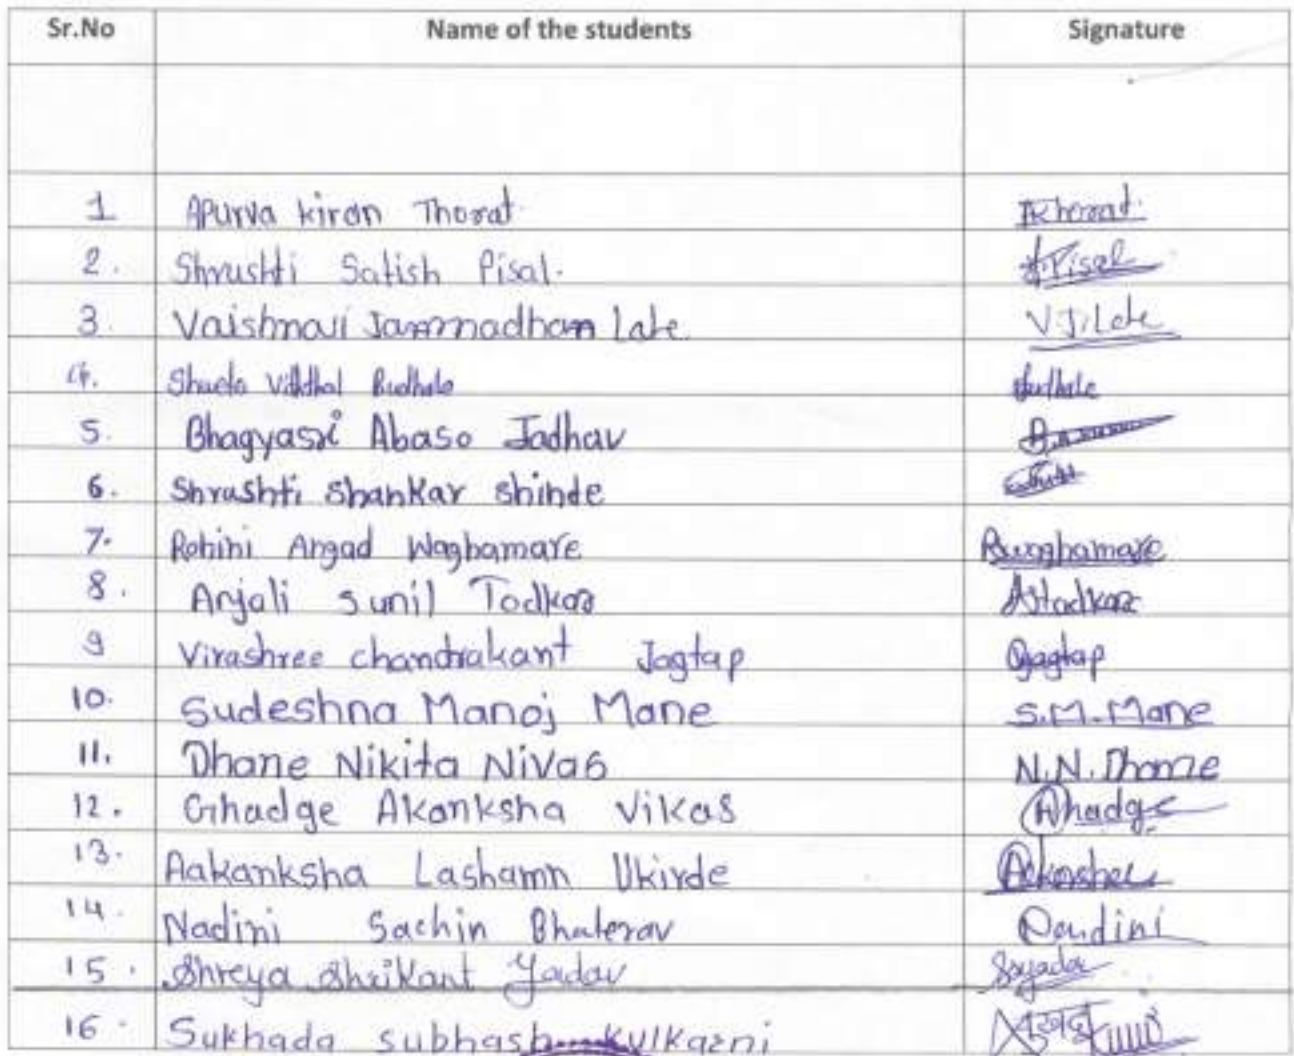 Sr.No Name of the students Signature
1 Apurva kiran Thorat. Thorat.
2. Shrushti Satish Pisal. S.Pisal
3. Vaishnavi Jannnadhan Late. V.J.Late
4. Vitthal Budhale Budhale
5. Bhagyasri Abaso Jadhav
6. Shrushti Shankar Shinde
7. Rohini Angad Waghamare Rwaghamare
8. Anjali Sunil Todkar AStodkar
9 Virashree chandrakant Jagtap Jagtap
10. Sudeshna Manoj Mane S.M.Mane
11. Dhane Nikita Nivas N.N.Dhane
12. Ghadge Akanksha Vikas Ghadge
13. Aakanksha Lashamn Ukirde Aakanksha
14. Nadini Sachin Bhalerav Nandini
15. Shreya Shrikant Yadav Ssyadav
16. Sukhada subhash kulkarni